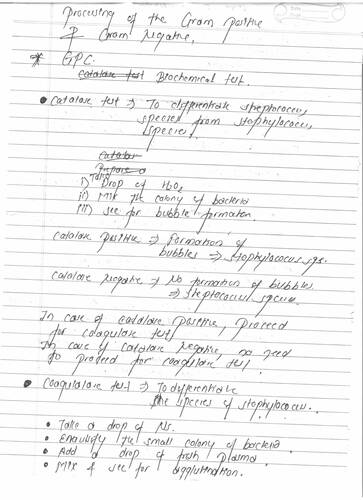 Processing of the Gram positive
& Gram Negative.
* GPC:
Catalase test Biochemical test.
• Catalase test ⇒ To differentiate streptococcus
species from staphylococcus
species.
Catalas
Prepare a
i) Take Drop of H2O2
ii) Mix the colony of bacteria
iii) see for bubble formation.
Catalase Positive ⇒ Formation of
bubbles ⇒ Staphylococcus sps.
Catalase Negative ⇒ No formation of bubbles
⇒ Streptococcus species
In case of catalase positive, proceed
for coagulase test
In case of catalase negative, no need
to proceed for coagulase test.
• Coagulase test ⇒ To differentiate
the species of staphylococcus.
• Take a drop of NS.
• Emulsify the small colony of bacteria.
• Add a drop of fresh plasma
• Mix & see for agglutination.